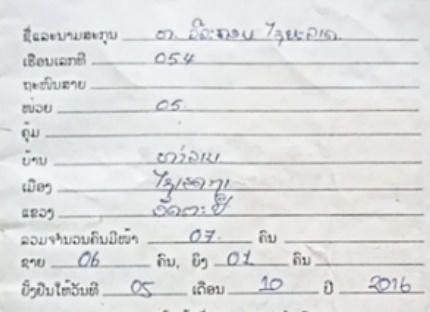 ຊື່ແລະນາມສະກຸນ ທ.
ເຮືອນເລກທີ 054
ຖະໜົນສາຍ
ໜ່ວຍ 05.
ຄຸ້ມ
ບ້ານ
ເມືອງ ໄຊເສດຖາ
ແຂວງ ອັດຕະປື
ລວມຈຳນວນຄົນມີໜ້າ 07. ຄົນ
ຊາຍ 06 ຄົນ, ຍິງ 01 ຄົນ
ຢັ້ງຢືນໃຫ້ວັນທີ 05 ເດືອນ 10 ປີ 2016